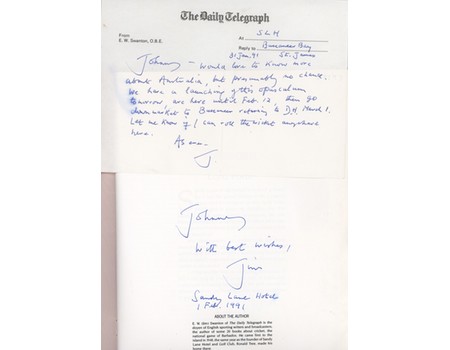 The Daily Telegraph
From
E. W. Swanton, O.B.E.
At SLH
Reply to Buccaneer Bay
31 Jan. 91 St. James
Johnny — Would love to know more
about Australia, but presumably no chance.
We have a launching of this opusculum
tomorrow, are here until Feb. 12, then go
to Buccaneer returning to D.H. March 1.
Let me know if I can note the wicket anywhere
here.
As ever
J
Johnny
With best wishes,
Jim
Sandy Lane Hotel
1 Feb. 1991
ABOUT THE AUTHOR
E. W. (Jim) Swanton of The Daily Telegraph is the
doyen of English sporting writers and broadcasters,
the author of some 20 books about cricket, the
national game of Barbados. He came first to the
island in
Lane Hotel and Golf Club. Ronald Tree, made his
home there.